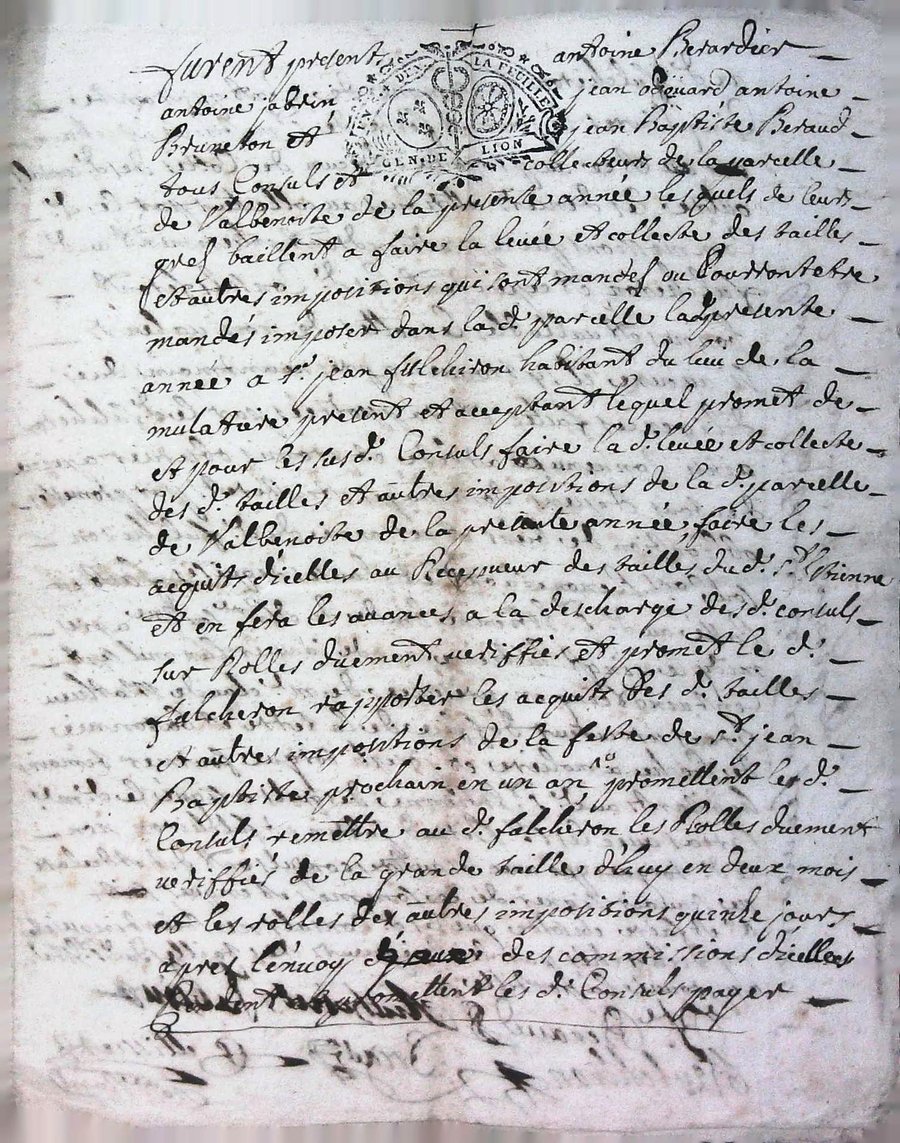 furent present antoine Berardier
antoine jabrin jean odouard antoine
Bruneton et jean Baptiste Beraud
GEN. DE LION
tous Consuls et collecteurs de la parcelle
de Valbenoite de la presente année lesquels de leurs
gres baillent a faire la levée et collecte des tailles
et autres impositions qui sont mandes ou pourront etre
mandés imposer dans la d. parcelle lad. presente
année a sr. jean falchiron habitant du lieu de la
mulatiere present et acceptant lequel promet de
et pour les sus d. Consuls faire la d. levée et collecte
des d. tailles et autres impositions de la d. parcelle
de Valbenoite de la presente année, faire les
acquits dicelles au Recepveur des tailles du d. st. Etienne
et en fera les avances a la descharge des d. consuls
sur Rolles duement veriffiés et promet le d.
falcheron rapporter les acquits des d. tailles
et autres impositions de la feste de st. jean
Baptiste prochain en un an promettent les d.
Consuls remettre au d. falcheron les Rolles duement
veriffiés de la grande taille d'huy en deux mois
et les rolles des autres impositions quinze jours
apres l'envoy des commissions dicelles
promettent les d. Consuls payer